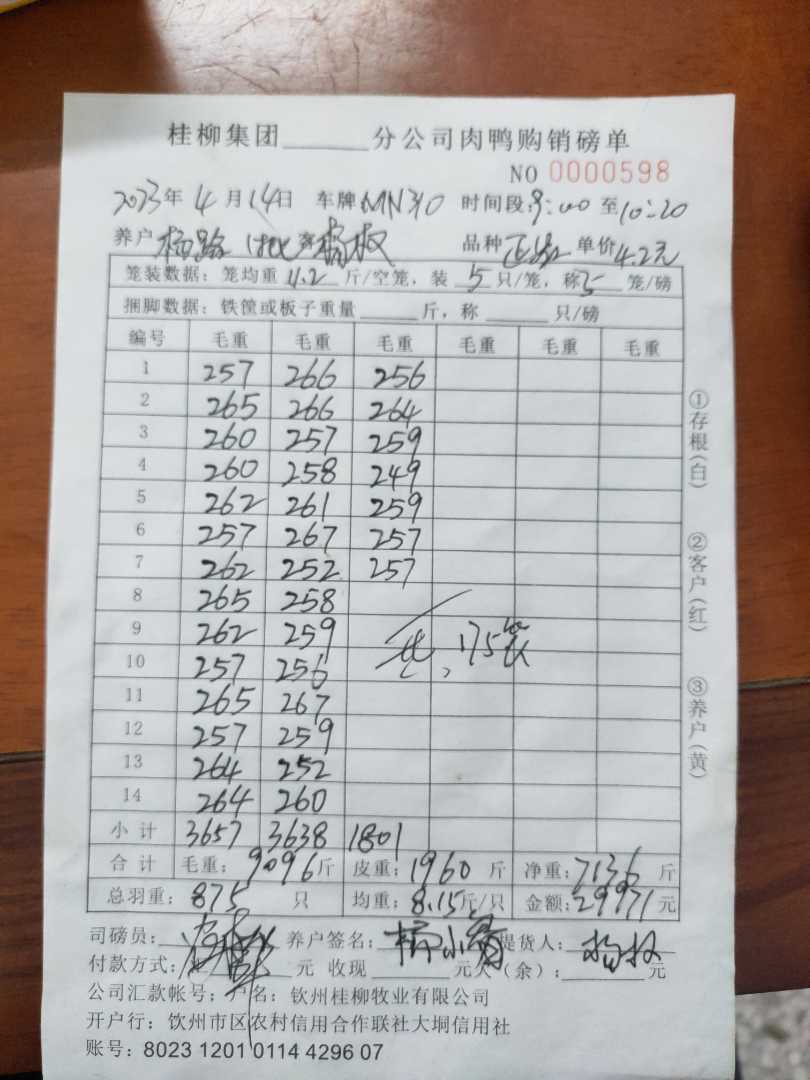 桂柳集团______分公司肉鸭购销磅单
NO 0000598
2023年 4 月 14日 车牌MN310 时间段:9:00至10:20
养户杨路 1批 客杨权 品种 单价4.2元
笼装数据:笼均重11.2斤/空笼,装 5 只/笼,称5 笼/磅
捆脚数据:铁筐或板子重量______斤,称______只/磅
编号 毛重 毛重 毛重 毛重 毛重 毛重
1 257 266 256
2 265 266 264
3 260 257 259
4 260 258 249
5 262 261 259
6 257 267 257
7 262 252 257
8 265 258
9 262 259
175
10 257 256
11 265 267
12 257 259
13 264 252
14 264 260
小计 3657 3638 1801
合计 毛重:9096斤 皮重:1960斤 净重:7136斤
总羽重:875只 均重:8.15斤/只 金额:29971元
司磅员: 养户签名: 提货人:杨权
付款方式: 元 收现______元欠(余):______元
公司汇款帐号;户名:钦州桂柳牧业有限公司
开户行:钦州市区农村信用合作联社大垌信用社
账号:8023 1201 0114 4296 07
①存根(白)
②客户(红)
③养户(黄)